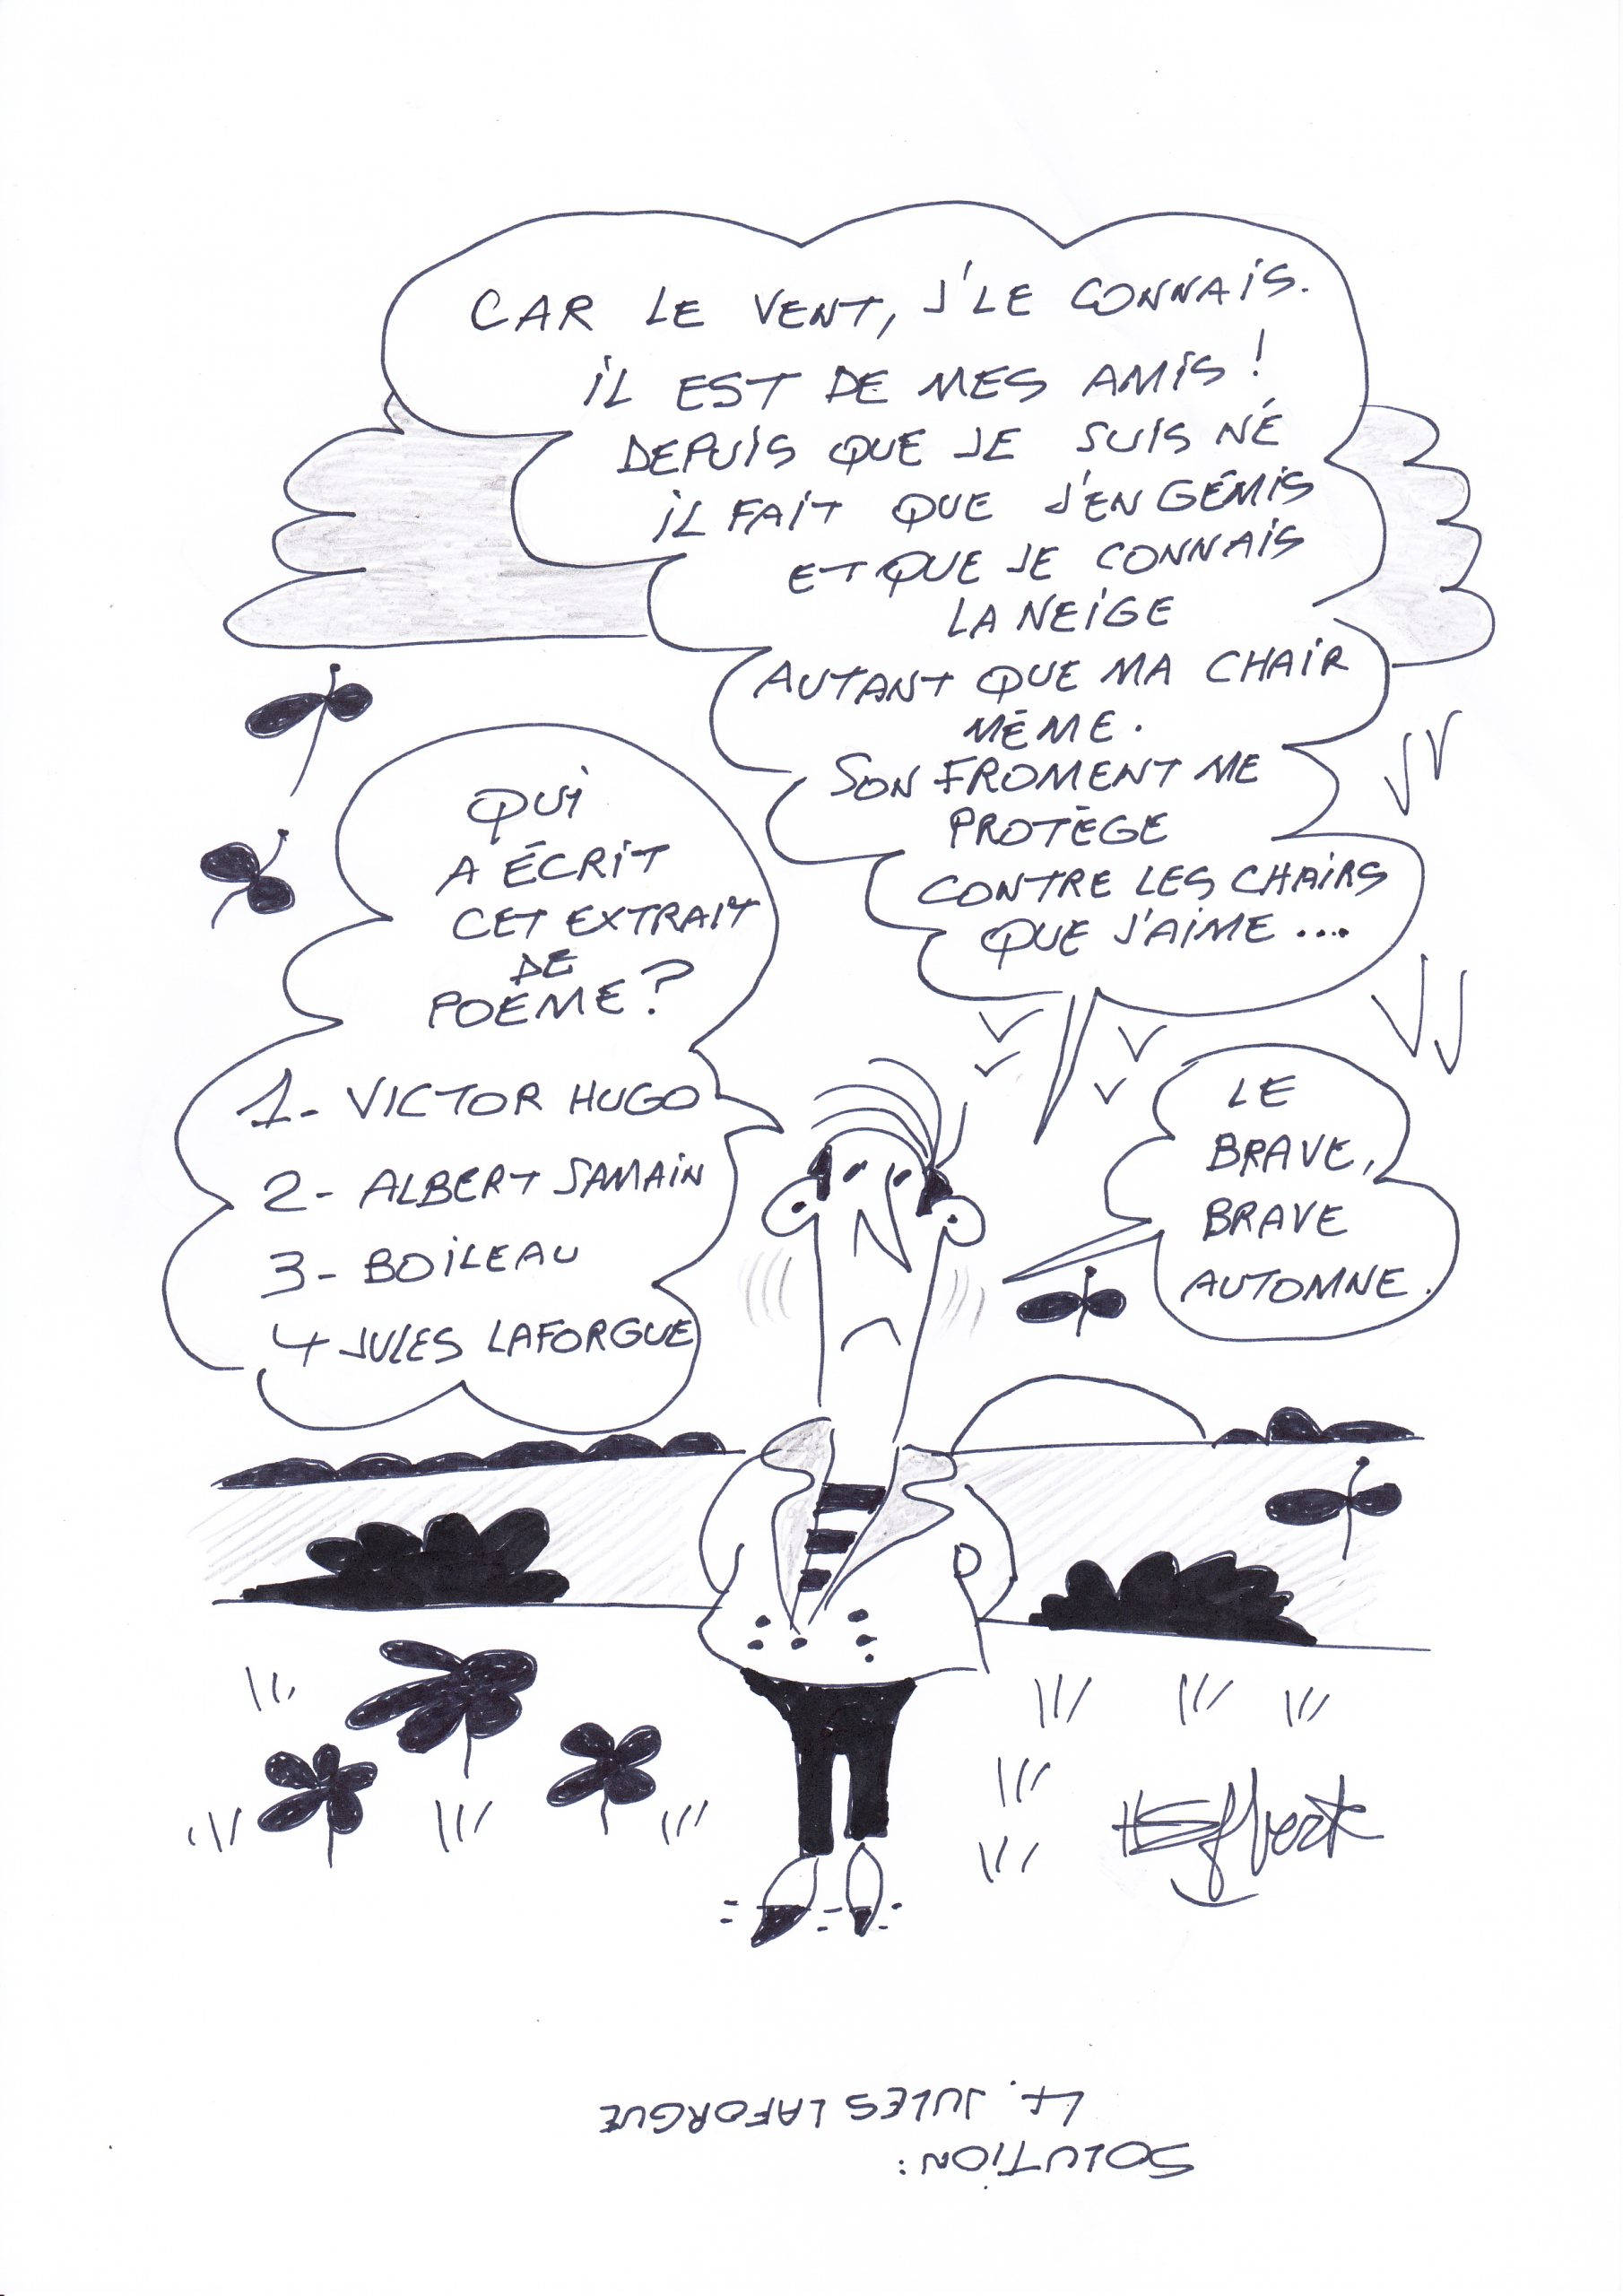 CAR LE VENT, J'LE CONNAIS.
IL EST DE MES AMIS !
DEPUIS QUE JE SUIS NÉ
IL FAIT QUE J'EN GÉMIS
ET QUE JE CONNAIS
LA NEIGE
AUTANT QUE MA CHAIR
MÊME.
SON FROMENT ME
PROTÈGE
CONTRE LES CHAIRS
QUE J'AIME ....
QUI
A ÉCRIT
CET EXTRAIT
DE
POÈME ?
1- VICTOR HUGO
2- ALBERT SAMAIN
3- BOILEAU
4 JULES LAFORGUE
LE
BRAVE,
BRAVE
AUTOMNE.
SOLUTION :
4. JULES LAFORGUE